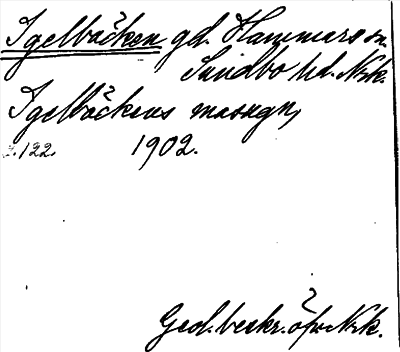 Igelbäcken gd. Hammars sn.
Sundbo hd. Nrk.
Igelbäckens masugn,
s. 122. 1902.
Geol. beskr. öfv. Nrk.